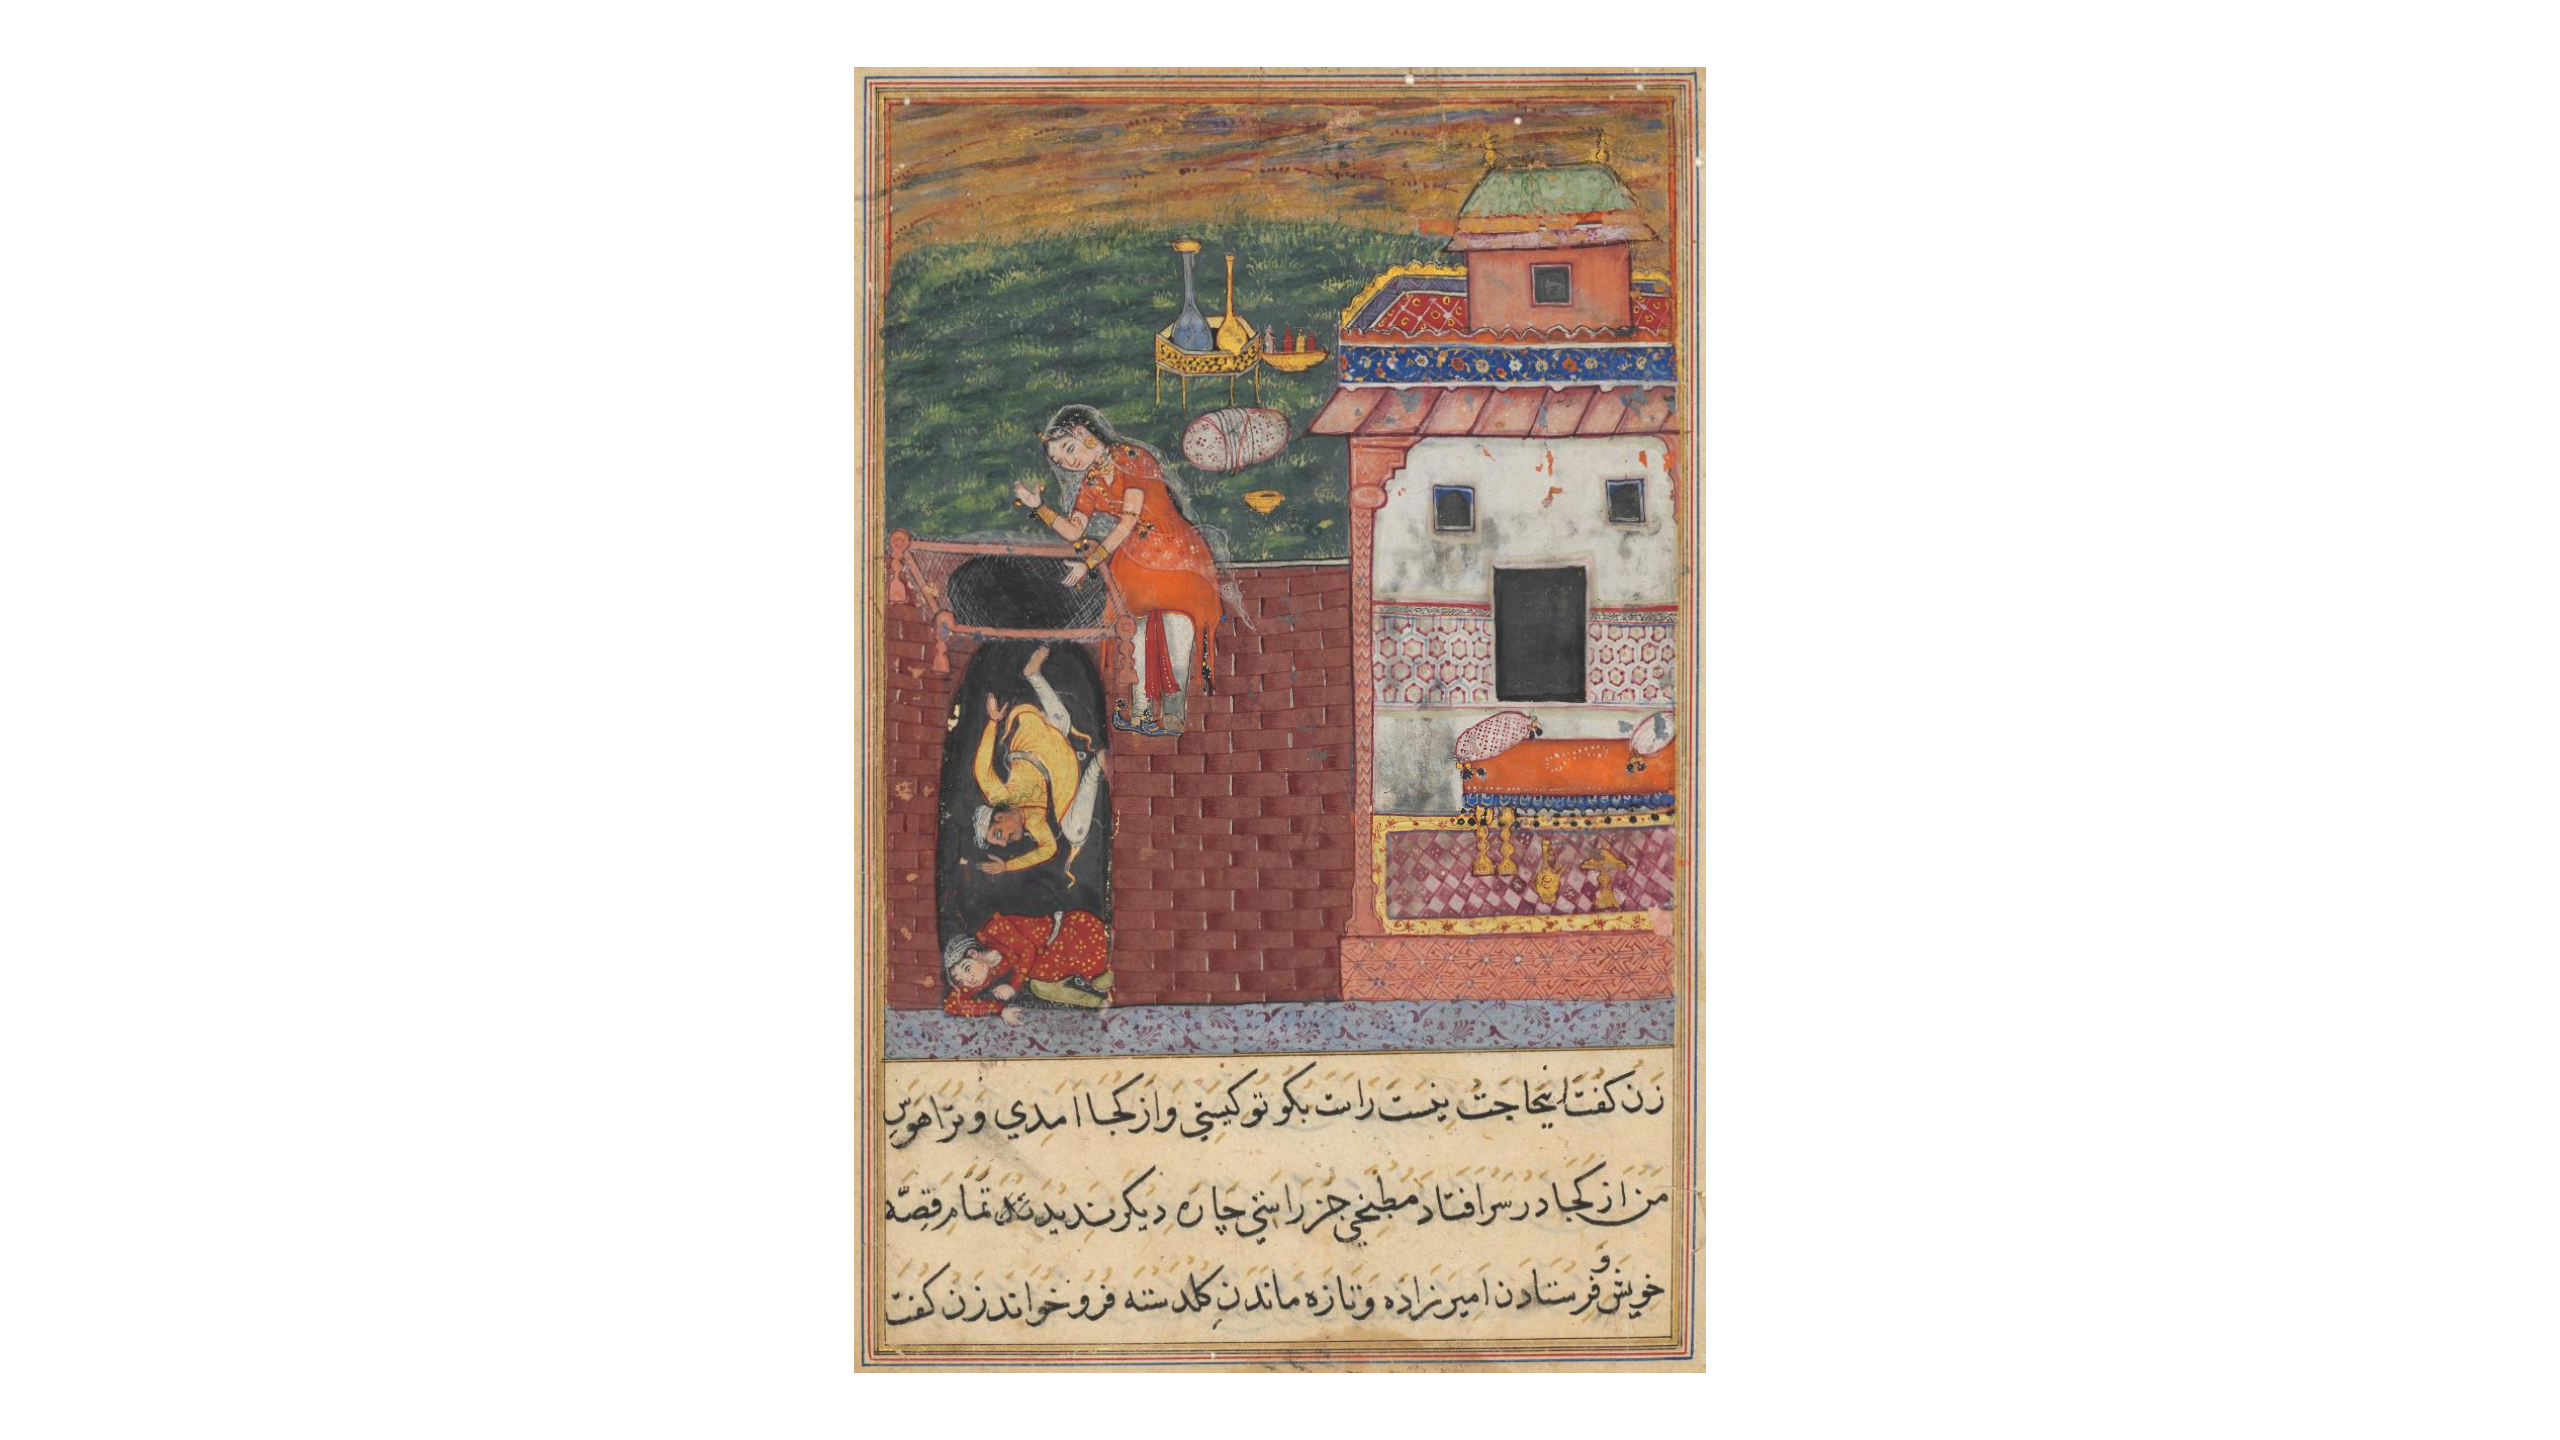 زن کفت اینجا حجت نیست راست بکو تو کیستي و از کجا امدي و ترا هوس
من از کجا در سر افتاد مطبخي جز راستي چاره دیکر ندید تمام قصّه
خویش و فرستادن امیرزاده و تازه ماندن کلدسته فرو خواند زن کفت